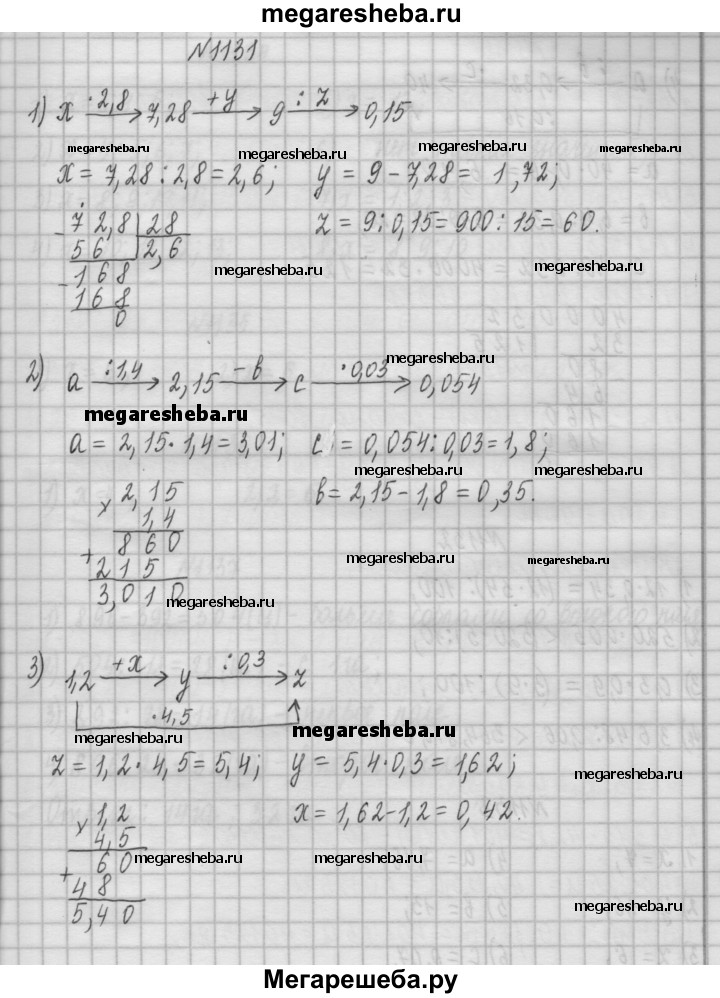 megaresheba.ru
№1131
1) x ·2,8 → 7,28 +y → 9 : z → 0,15
megaresheba.ru megaresheba.ru megaresheba.ru megaresheba.ru
x = 7,28 : 2,8 = 2,6; y = 9 - 7,28 = 1,72;
72,8 | 28 z = 9 : 0,15 = 900 : 15 = 60.
- 56 | 2,6
megaresheba.ru megaresheba.ru
- 168
168
0
2) a :1,4 → 2,15 - в → c ·0,03 → 0,054
megaresheba.ru
megaresheba.ru
a = 2,15 · 1,4 = 3,01; c = 0,054 : 0,03 = 1,8;
megaresheba.ru megaresheba.ru
× 2,15 в = 2,15 - 1,8 = 0,35.
1,4
860
megaresheba.ru megaresheba.ru
+ 215
3,010
megaresheba.ru
3) 1,2 +x → y :0,3 → z
·4,5
megaresheba.ru megaresheba.ru
z = 1,2 · 4,5 = 5,4; y = 5,4 · 0,3 = 1,62;
megaresheba.ru
× 1,2 x = 1,62 - 1,2 = 0,42.
4,5
60
megaresheba.ru megaresheba.ru
+ 48
5,40
megaresheba.ru
Мегарешеба.ру